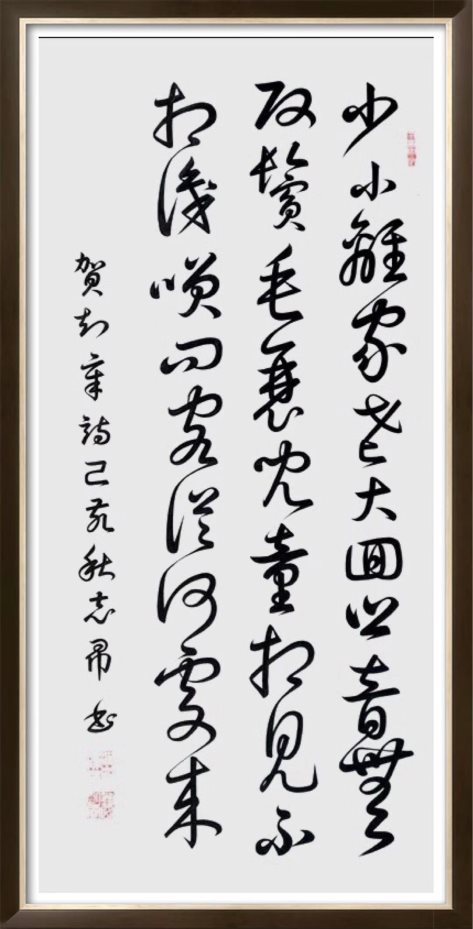 少小離家老大回鄉音無
改鬢毛衰兒童相見不
相識咲問客從何處來
賀知章詩己亥秋志書